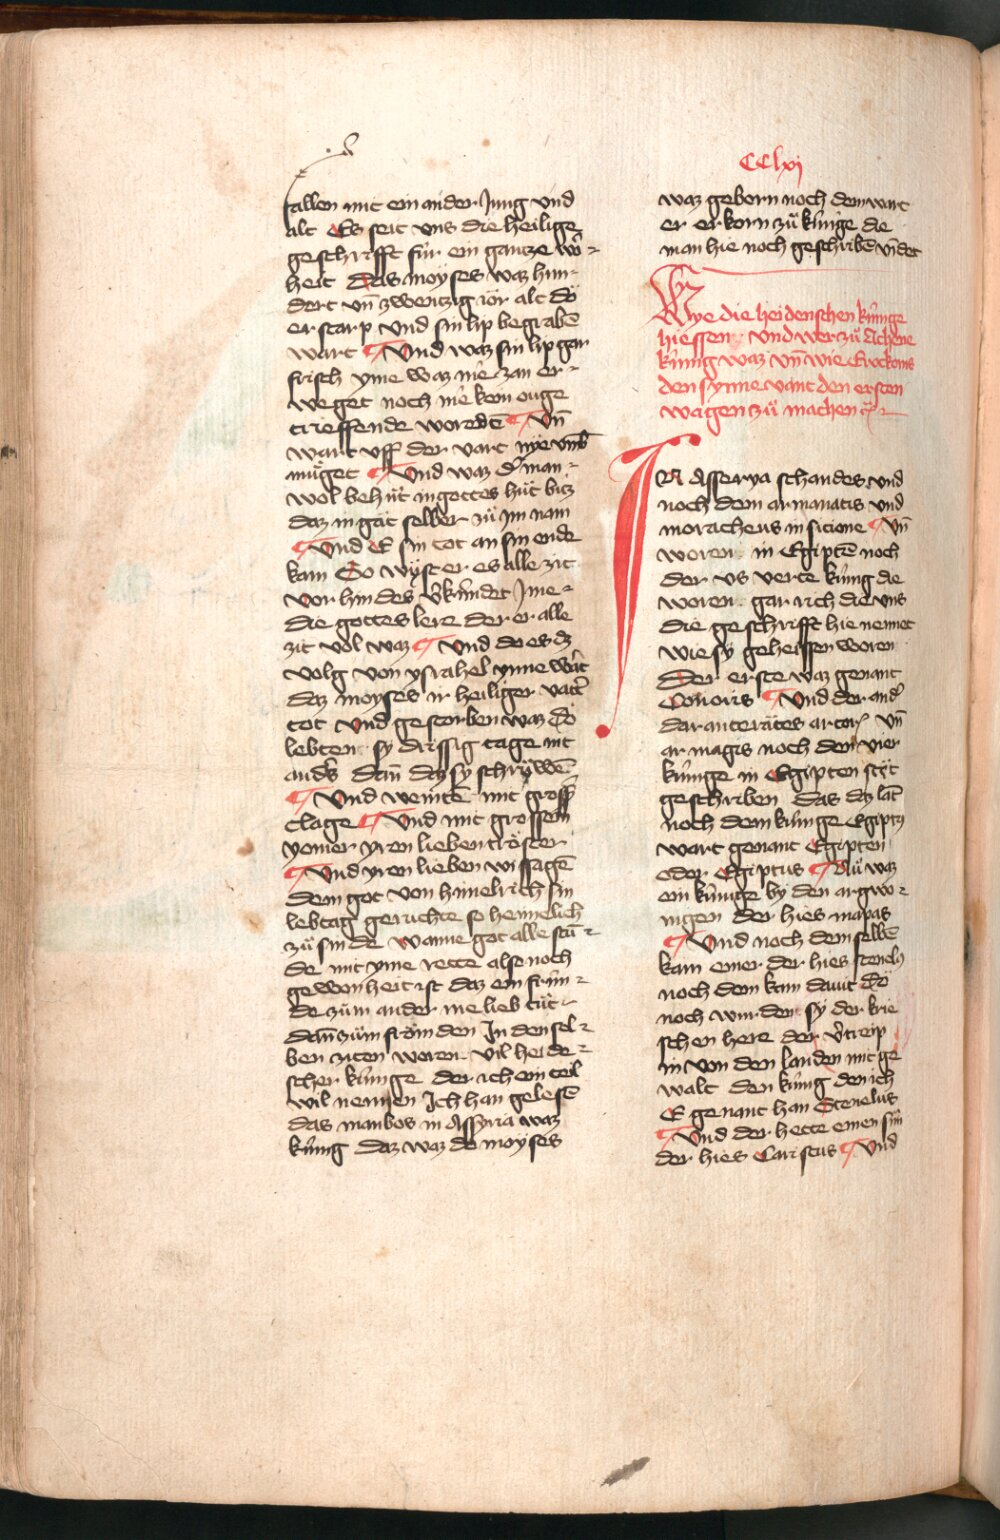 CClxj
fallen mit ein ander Jung vnd
alt Es seit vns die heilige
geschrifft für ein gantze wor-
heit Das moyses waz hun-
dert vn̄ zwentzig ior alt do
er starp vnd sin lip begrabē
wart ¶ Vnd waz sin lip gar
frisch yme waz nie zan er-
weget noch nie kein ouge
trieffende wordē ¶ Vn̄
wart vff der vart nye
muͤget ¶ Vnd waz dͬ man
wol behüt in gottes hüt bitz
daz in got selber zuͦ im nam
¶ Vnd E sin tot an sin ende
kam Do wyst er es alle zit
vor hin des v̾kündet Jme
die gottes lere der er alle
zit vol waz ¶ Vnd do es dz
volg von ysrahel ynne wart
daz moyses ir heiliger vatt̾
tot vnd gestorben waz do
lebten sy drissig tage nit
and̾s dan̄ daz sy schrüwē
¶ Vnd weintē mit gross̾
clage ¶ Vnd mit grossem
yomer yren lieben tröster
¶ Vnd yren lieben wissagē
dem got von himelrich sin
lebtag gerüchte so heimelich
zuͦ sinde wanne got alle stū-
de mit yme rette also noch
gewonheit ist daz ein frün-
de züm ander me lieb tüt
dan̄ züm frömden In den sel-
ben ziten woren vil heide-
scher künige der ich ein teil
wil nennen Ich han gelesē
das manbos in Assyria waz
künig daz waz do moyses
waz geborn noch dem wart
er erkorn zuͦ künige die
man hie noch geschriben vindet
Wye die heidenschen künige
hiessen vnd wer zuͦ Achene
künig waz vn̄ wie Erockoms
den synne vant den ersten
wagen zuͦ machen
IN Asserya schandes vnd
noch dem armanatis vnd
moracheus in sicione ¶ Vn̄
woren in Egiptē noch
der vs verte künig die
woren gar rich die vns
die geschrifft hie nennet
wie sy geheissen woren
Der erste waz genant
Conoris ¶ Vnd der and̾
dar anterates artor vn̄
armagis noch den vier
künige in Egipten stet
geschriben Das dz lāt
noch dem künige Egiptz
wart genant Egipten
oder Egiptus ¶ Nuͦ waz
ein künige by den argwo-
nigen der hies mapas
¶ Vnd noch dem selbē
kam einer der hies stenelz
noch dem kam danit do
noch wurden sy der krie
schen here der v̾treip
in von den landen mit ge
walt den künig den ich
E genant han Stenelus
¶ Vnd der hette einen sün
der hies Caristus ¶ Vnd